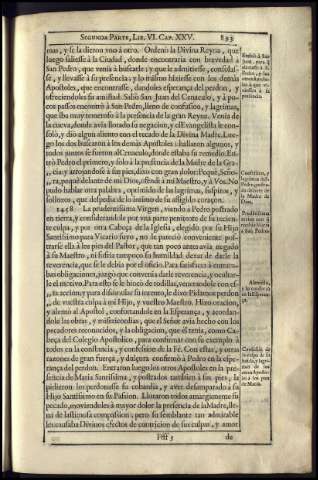 SEGUNDA PARTE, LIB. VI. CAP. XXV. 893
mas, y se la dieron vno à otro. Ordenò la Divina Reyna, que
luego saliesse à la Ciudad, donde encontraria con brevedad à
San Pedro, que venia à buscarla; y que le admitiesse, consolas-
se, y llevasse à su presencia; y lo mismo hiziesse con los demás
Apostoles, que encontrasse, dandoles esperança del perdon, y
ofreciendoles su amistad. Saliò San Juan del Cenaculo, y à po-
cos passos encontrò à San Pedro, lleno de confusion, y lagrimas,
que iba muy temeroso à la presencia de la gran Reyna. Venia de
la cueva, donde avia llorado su negacion, y el Evangelista le con-
solò, y diò algun aliento con el recado de la Divina Madre. Lue-
go los dos buscaron à los demás Apostoles; hallaron algunos, y
todos juntos se fueron al Cenaculo, donde estaba su remedio. En-
trò Pedro el primero, y solo à la presencia de la Madre de la Gra-
cia, y arrojandose à sus pies, dixo con gran dolor: Pequè, Seño-
ra, pequè delante de mi Dios, ofendì à mi Maestro, y à Vos. No
pudo hablar otra palabra, oprimido de las lagrimas, suspiros, y
sollozos, que despedia de lo intimo de su afligido coraçon.
1458. La prudentissima Virgen, viendo à Pedro postrado
en tierra, y considerandole por vna parte penitente de su recien-
te culpa, y por otra Cabeça de la Iglesia, elegido por su Hijo
Santissimo para Vicario suyo, no le pareciò conveniente pos-
trarse ella à los pies del Pastor, que tan poco antes avia negado
à su Maestro, ni sufria tampoco su humildad dexar de darle la
reverencia, que se le debia por el oficio. Para satisfacer à entram-
bas obligaciones, juzgò que convenia darle reverencia, y ocultar-
le el motivo. Para esto se le hincò de rodillas, venerandole con es-
ta accion; y para disimular su intento, le dixo: Pidamos perdon
de vuestra culpa à mi Hijo, y vuestro Maestro. Hizo oracion,
y alentò al Apostol, confortandole en la Esperança, y acordan-
dole las obras, y misericordias, que el Señor avia hecho con los
pecadores reconocidos, y la obligacion, que èl tenia, como Ca-
beça del Colegio Apostolico, para confirmar con su exemplo à
todos en la constancia, y confession de la Fè. Con estas, y otras
razones de gran fuerça, y dulçura enseñò à Pedro en la esperan-
ça del perdon. Entraron luego los otros Apostoles en la pre-
sencia de Maria Santissima, y postrados tambien à sus pies, la
pidieron los perdonasse su cobardia, y aver desamparado à su
Hijo Santissimo en su Passion. Lloraron todos amargamente su
pecado, moviendoles à mayor dolor la presencia de la Madre, lle-
na de lastimosa compassion; pero su semblante tan admirable
les causaba Divinos efectos de contricion de sus culpas, y amor
Fff 3 de